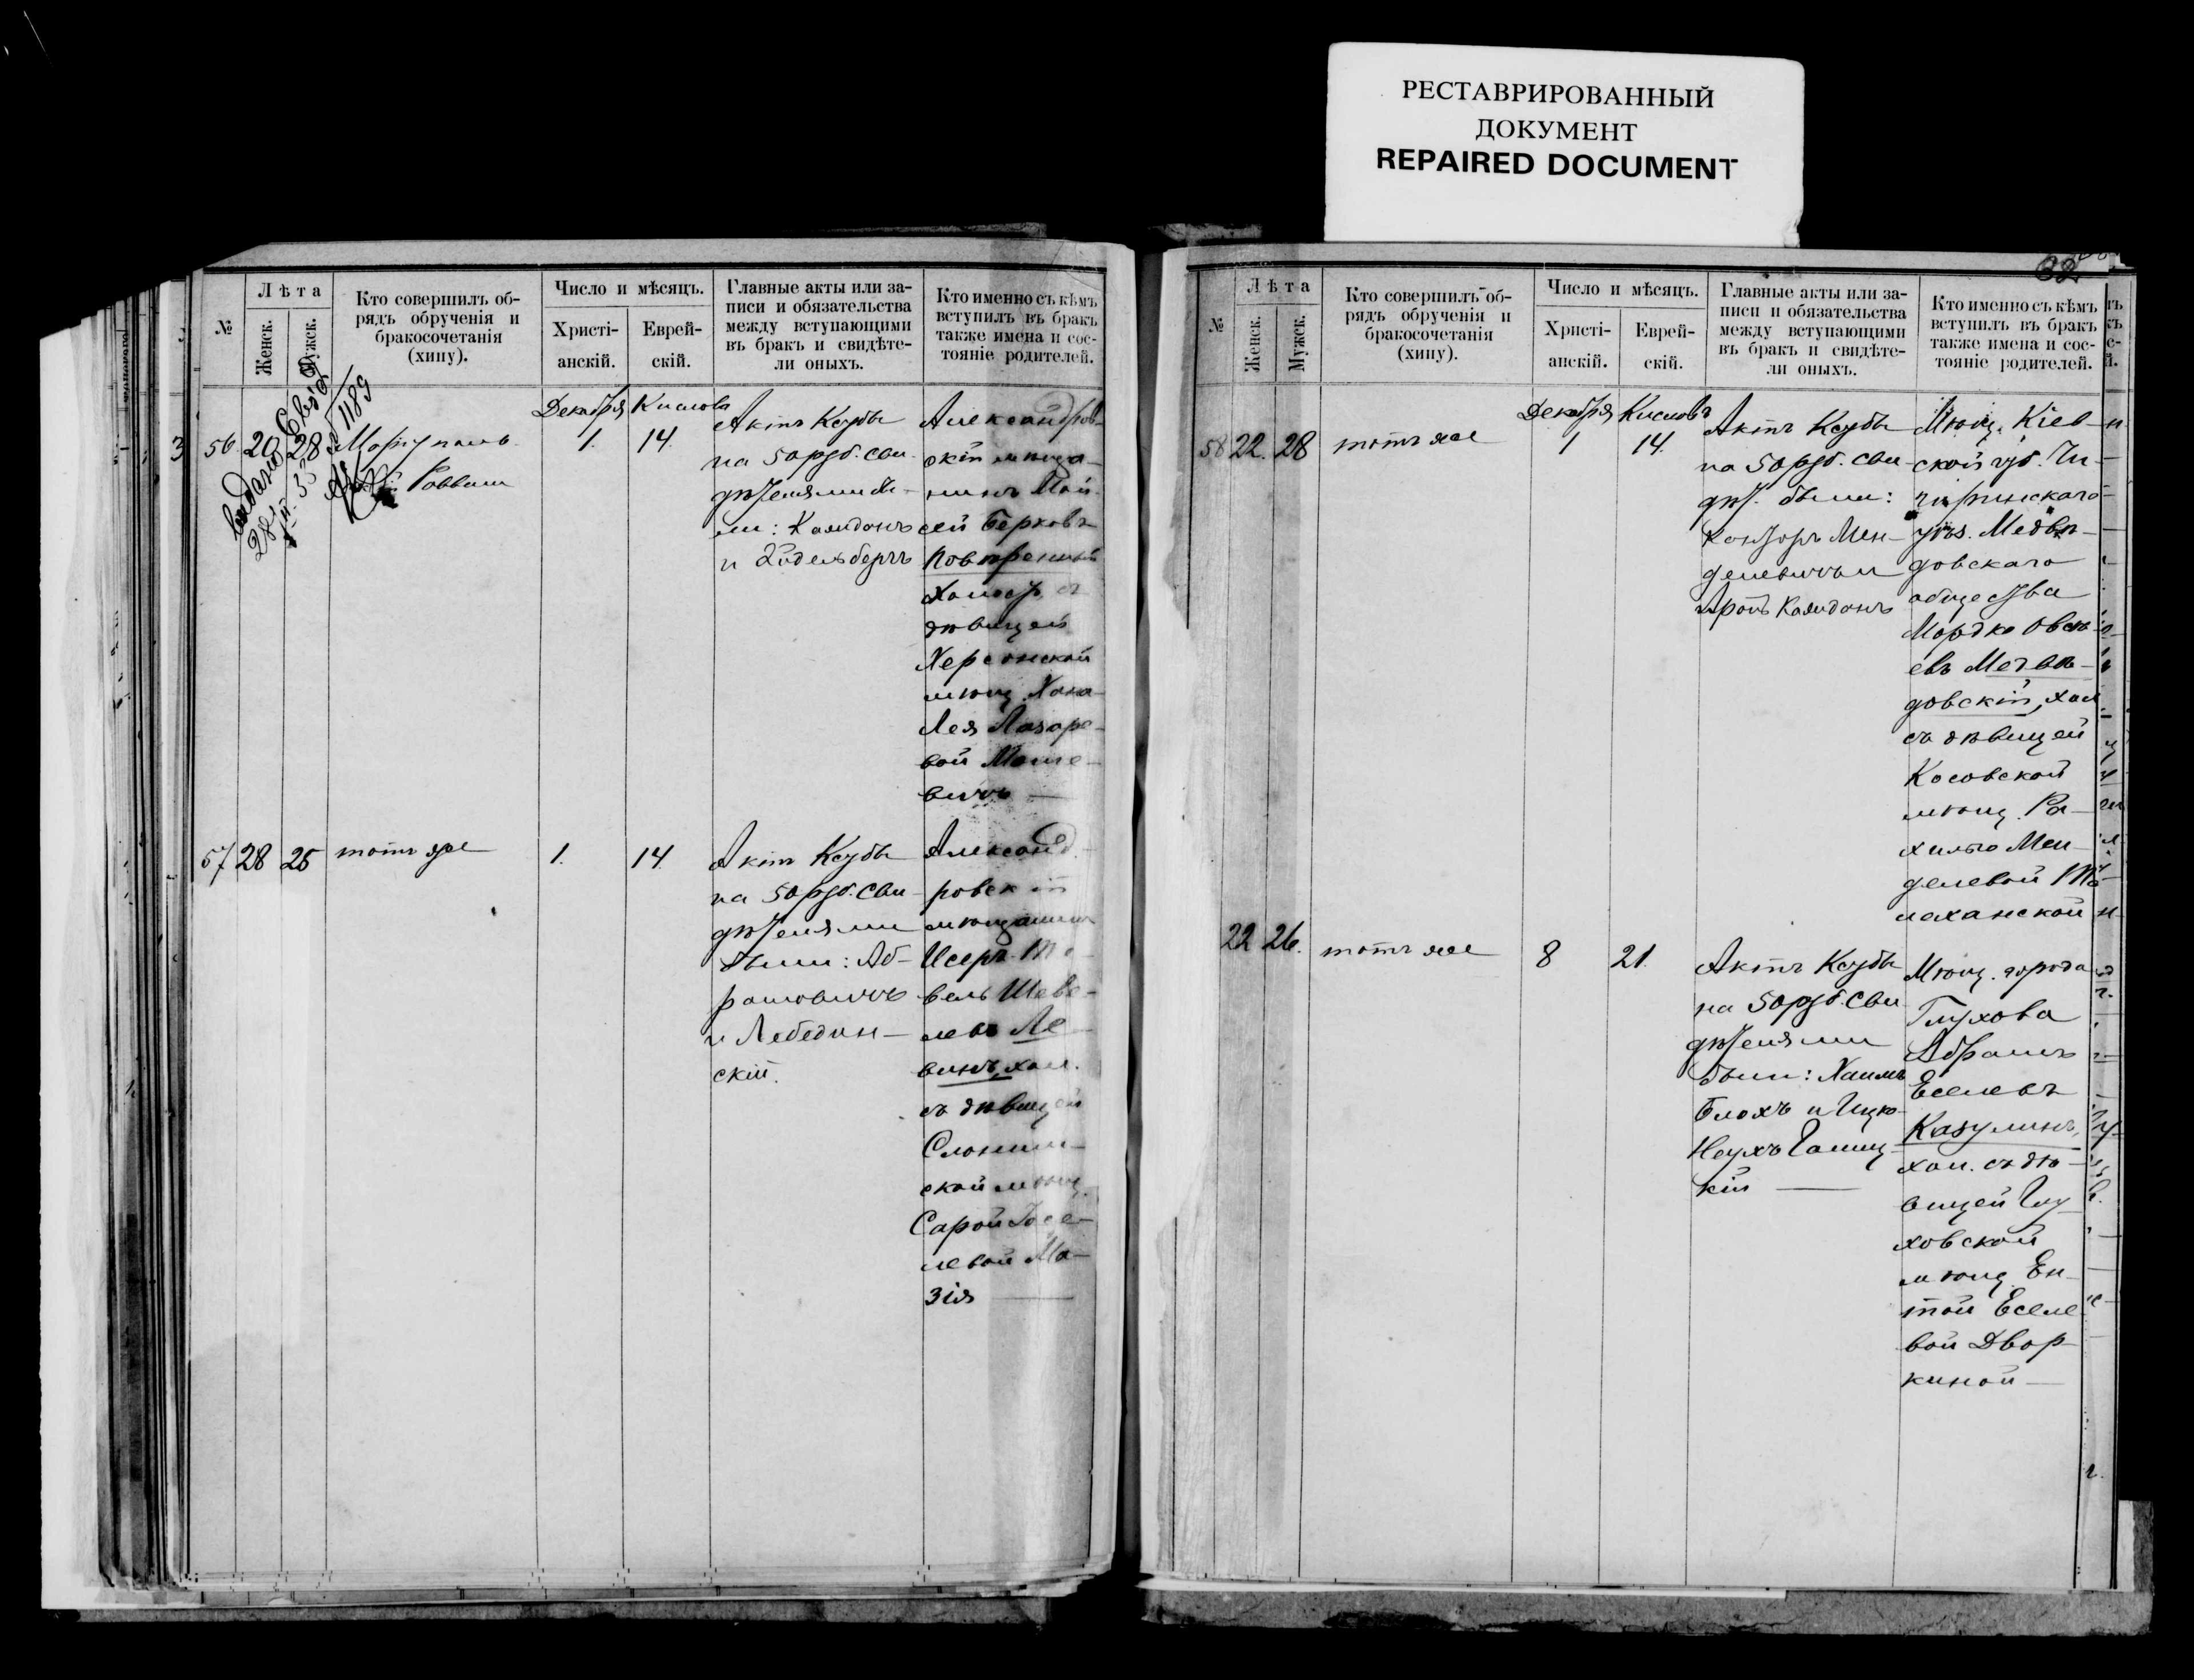 РЕСТАВРИРОВАННЫЙ
ДОКУМЕНТ
REPAIRED DOCUMENT
№
Лѣта
Женск.
Мужск.
Кто совершилъ об-
рядъ обрученія и
бракосочетанія
(хипу).
Число и мѣсяцъ.
Христі-
анскій.
Еврей-
скій.
Главные акты или за-
писи и обязательства
между вступающими
въ бракъ и свидѣте-
ли оныхъ.
Кто именно съ кѣмъ
вступилъ въ бракъ
также имена и сос-
тояніе родителей.
56. 20 28
Раввинъ
Декабря
1.
Кислова
14.
Актъ Ксубы
на 50 руб. сви-
дѣтелями бы-
ли: Каждонъ
и Эйдельбергъ
Александров-
скій мѣща-
нинъ Мой-
сей Берковъ
Повѣренный
Холост. съ
дѣвицей
Херсонской
мѣщ. Хана-
Лея Лазаре-
вой Моше-
вичъ
57 28 25
тотъ же
1.
14.
Актъ Ксубы
на 50 руб. сви-
дѣтелями
были: Аб-
рамовичъ
и Лебедин-
скій.
Александ-
ровскій
мѣщанинъ
Шеве-
левъ Ле-
винъ, хол.
съ дѣвицей
Слоним-
ской мѣщ.
Сарой
левой Ма-
зія
32
№
Лѣта
Женск.
Мужск.
Кто совершилъ об-
рядъ обрученія и
бракосочетанія
(хипу).
Число и мѣсяцъ.
Христі-
анскій.
Еврей-
скій.
Главные акты или за-
писи и обязательства
между вступающими
въ бракъ и свидѣте-
ли оныхъ.
Кто именно съ кѣмъ
вступилъ въ бракъ
также имена и сос-
тояніе родителей.
58 22. 28
тотъ же
Декабря
1
Кислова
14.
Актъ Ксубы
на 50 руб. сви-
дѣт. были:
Канторъ Мен-
делевичъ и
Аронъ Каждонъ
Мѣщ. Кіев-
ской губ. Чи-
гиринскаго
уѣз. Медвѣ-
довскаго
общества
Мордко Овсѣ-
евъ Медвѣ-
довскій, хол.
съ дѣвицей
Косовской
мѣщ. Ра-
хилью Мен-
делевой Ма-
лаханской
22 26.
тотъ же
8
21.
Актъ Ксубы
на 50 руб. сви-
дѣтелями
были: Хаимъ
Блохъ и Ицко-
Неухъ Галиц-
кій
Мѣщ. города
Глухова
Абрамъ
Еселевъ
Казулинъ,
хол. съ дѣ-
вицей Глу-
ховской
мѣщ. Ен-
той Еселе-
вой Двор-
киной